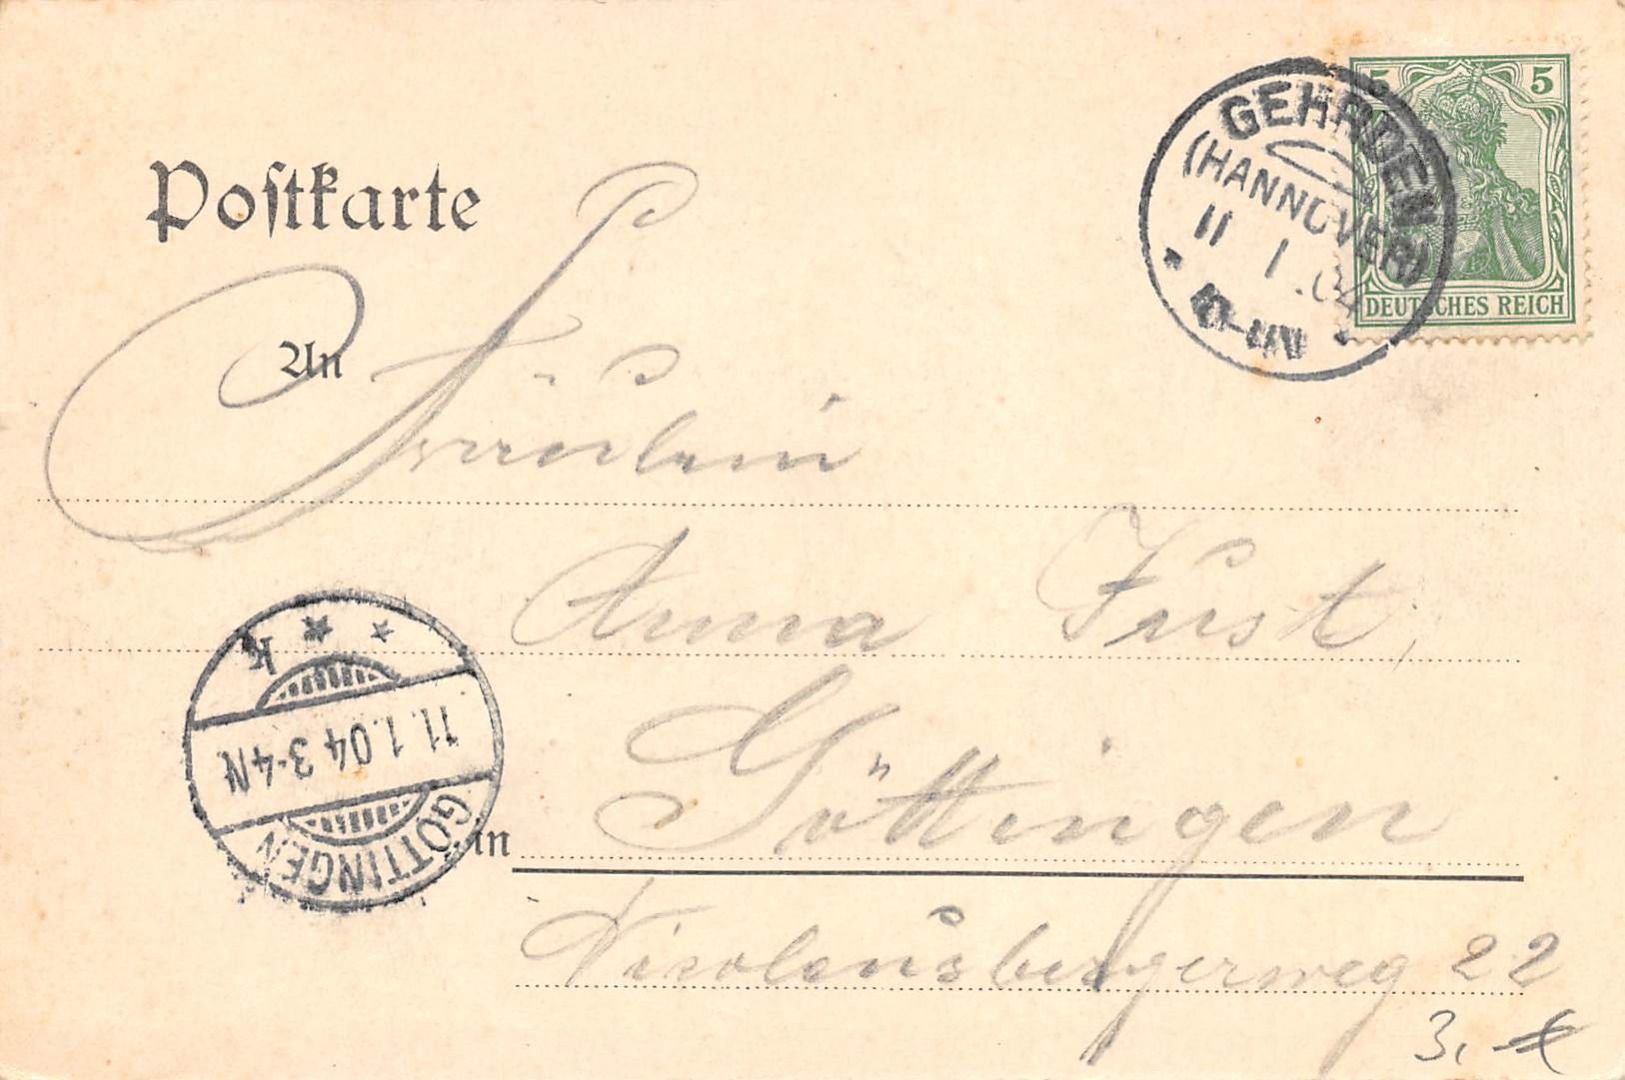 Postkarte
GEHRDEN
(HANNOVER)
11 1.04
5 5
DEUTSCHES REICH
An
Fräulein
Anna Just,
GÖTTINGEN
11.1.04 3-4N
* * k
in
Göttingen
Nicolausbergerweg 22
3,